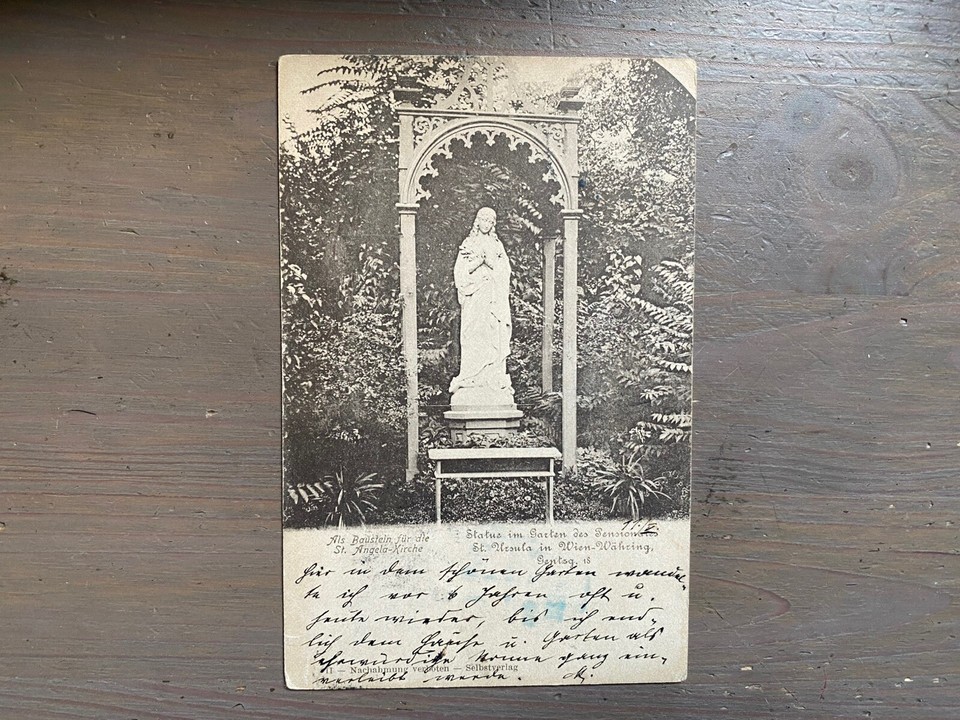 Als Baustein für die
St. Angela-Kirche
11./X.
Statue im Garten des Pensionates
St. Ursula in Wien-Währing,
Gentzg. 18
Hier in dem schönen Garten wandel-
te ich vor 6 Jahren oft u.
heute wieder, bis ich end-
lich dem Hause u. Garten als
ehrwürdige Nonne ganz ein-
11 — Nachahmung verboten — Selbstverlag
verleibt werde.